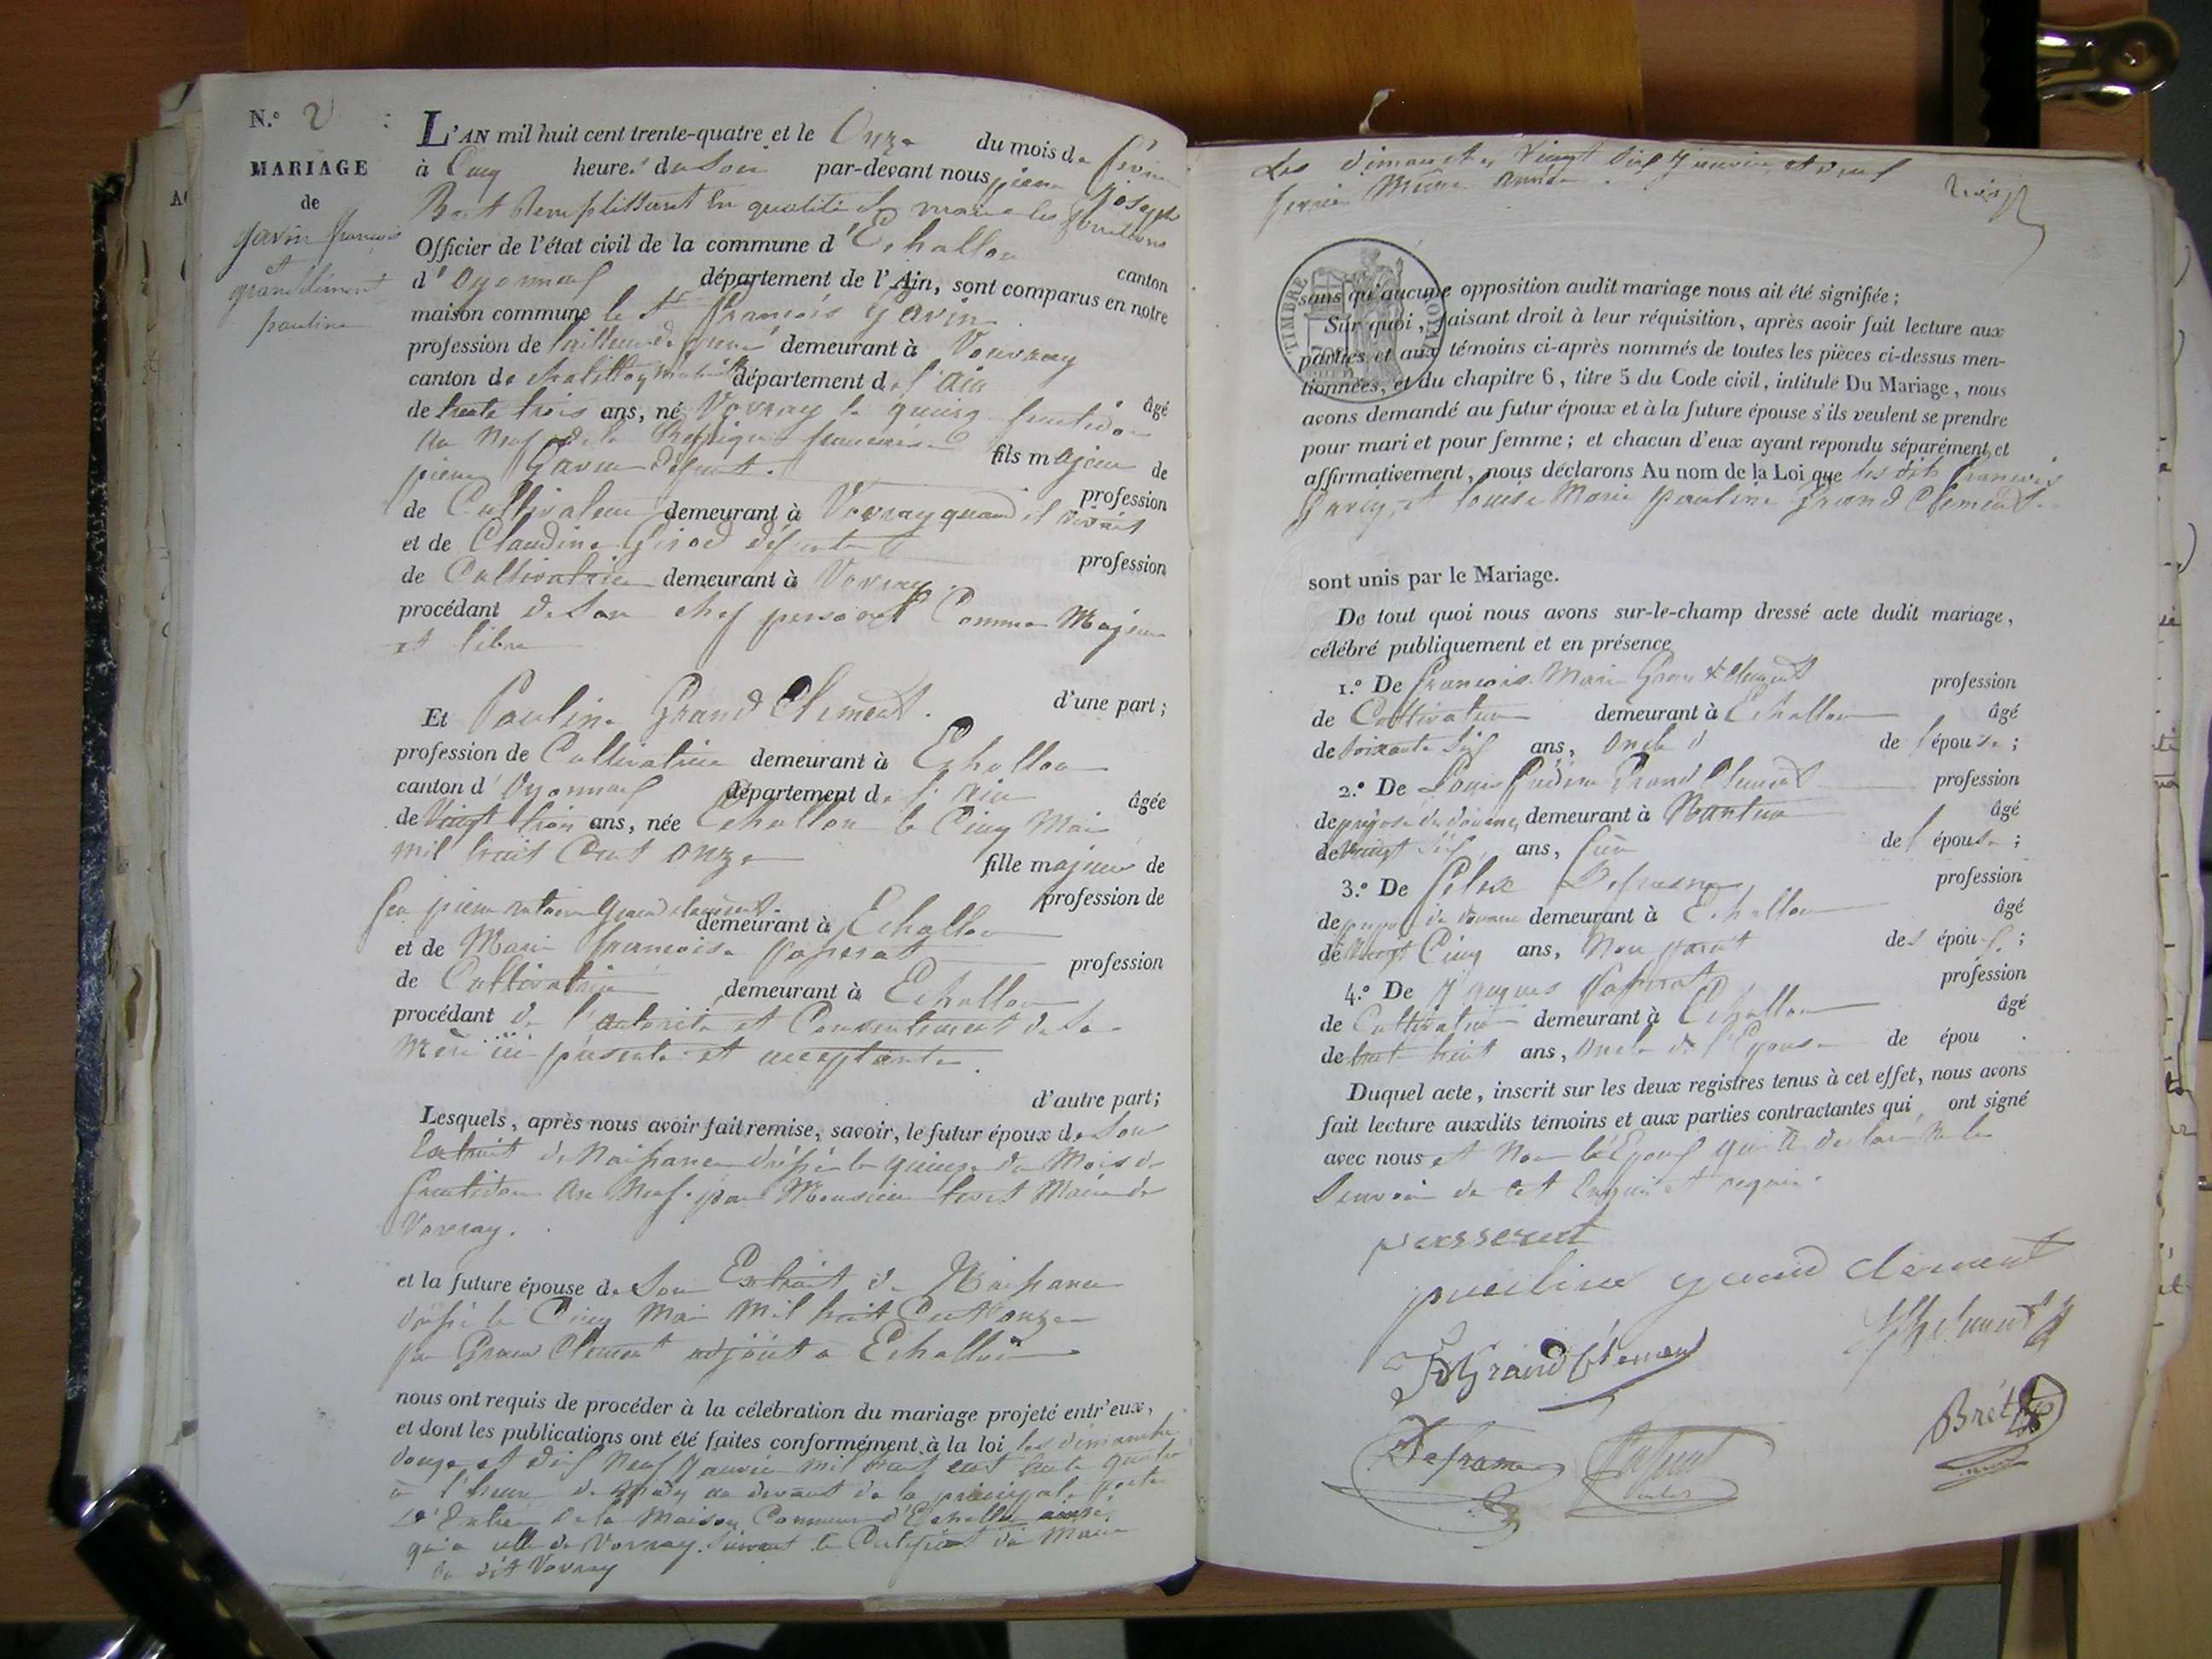 N.º 2
MARIAGE
de
Gavin François
et
grandclément
pauline
L'AN mil huit cent trente-quatre et le Onze du mois de février
à Cinq heures du Soir par-devant nous pierre Joseph
Bret Remplissant En qualité de maire les fonctions
Officier de l'état civil de la commune d'Echallon
canton
d'Oyonnax département de l'Ain, sont comparus en notre
maison commune le Sr François Gavin
profession de tailleur de pierre demeurant à Vouvray
canton de département de l'Ain
âgé
de trente trois ans, né Vovray le quinze fructidor
An Neuf de la République française
fils majeur de
pierre Gavin défunt.
profession
de Cultivateur demeurant à Vovray quand il vivait
et de Claudine Girod défunte
profession
de Cultivatrice demeurant à Vovray
procédant de Son chef personel Comme Majeur
et libre
d'une part;
Et Pauline Grand Clement.
profession de Cultivatrice demeurant à Echallon
canton d'Oyonnax département de l'Ain
âgée
de Vingt trois ans, née Echallon le Cinq Mai
mil huit Cent onze
fille majeure de
feu pierre antoine Grand clement.
profession de
demeurant à Echallon
et de Marie françoise
profession
de Cultivatrice demeurant à Echallon
procédant de l'autorité et Consentement de Sa
Mère ici présente et acceptante.
d'autre part;
Lesquels, après nous avoir fait remise, savoir, le futur époux de Son
Extrait de Naissance dressé le quinze du Mois de
fructidor An Neuf. par Monsieur Maire de
Vovray.
et la future épouse de Son Extrait de Naissance
dressé le Cinq Mai Mil huit Cent onze
par Grand Clement adjoint a Echallon
nous ont requis de procéder à la célébration du mariage projeté entr'eux,
et dont les publications ont été faites conformément à la loi les dimanche
douze et dix Neuf Janvier mil huit cent trente quatre
à l'heure de Midy au devant de la principale porte
d'Entrée de la Maison Commune d'Echallon ainsi
qu'a celle de Vovray. Suivant le Certificat du Maire
du dit Vovray
Les dimanches Vingt Six Janvier et deux
fevrier Même année.
sans qu'aucune opposition audit mariage nous ait été signifiée;
TIMBRE ROYAL
Sur quoi, faisant droit à leur réquisition, après avoir fait lecture aux
parties et aux témoins ci-après nommés de toutes les pièces ci-dessus men-
tionnées, et du chapitre 6, titre 5 du Code civil, intitulé Du Mariage, nous
avons demandé au futur époux et à la future épouse s'ils veulent se prendre
pour mari et pour femme; et chacun d'eux ayant repondu séparément et
affirmativement, nous déclarons Au nom de la Loi que les dits François
Gavin, et Louise Marie pauline Grand Clement.
sont unis par le Mariage.
De tout quoi nous avons sur-le-champ dressé acte dudit mariage,
célébré publiquement et en présence
1.º De François Marie Grand Clement profession
de Cultivateur demeurant à Echallon âgé
de Soixante Six ans, Oncle de l'épouse;
2.º De Louis Grand Clement profession
de préposé des douanes demeurant à Nantua âgé
de Vingt ans, frère de l'épouse;
3.º De Felix Defrasne profession
de préposé des douanes demeurant à Echallon âgé
de Vingt Cinq ans, Non parent des époux;
4.º De Jacques profession
de Cultivateur demeurant à Echallon âgé
de trente huit ans, Oncle de l'Epouse de épou .
Duquel acte, inscrit sur les deux registres tenus à cet effet, nous avons
fait lecture auxdits témoins et aux parties contractantes qui ont signé
avec nous et Non l'Epoux qui a déclaré Ne le
Savoir de cet Enquis et requis.
pauline grand clement
FM Grand Clement
Defrasne
Brét